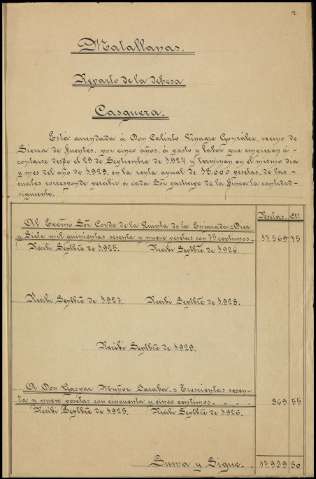 2
Matallanas.
Reparto de la dehesa
Casquera.
Está arrendada á Don Calixto Vinagre González, vecino de
Sierra de Fuentes, por cinco años, á pasto y labor que empiezan á
contarse desde el 29 de Septiembre de 1924 y terminan en el mismo dia
y mes del año de 1929, en la renta anual de 32.000 pesetas, de las
cuales corresponde percibir á cada Sor. partícipe de la finca la cantidad
siguiente.
Pesetas Cts
Al Excmo Sor Conde de la Quinta de la Enjarada Diez
y siete mil quinientas sesenta y nueve pesetas con céntimos. 17.569
Recibí Sepbre de 1925. Recibí Sepbre de 1926.
Recibí Sepbre de 1927. Recibí Sepbre de 1928.
Recibí Sepbre de 1929.
A Don Gaspar Muñoz Trescientas sesen-
ta y nueve pesetas con cincuenta y cinco céntimos. 369 55
Recibí Sepbre de 1925. Recibí Sepbre de 1926.
Suma y Sigue. 17.939 30